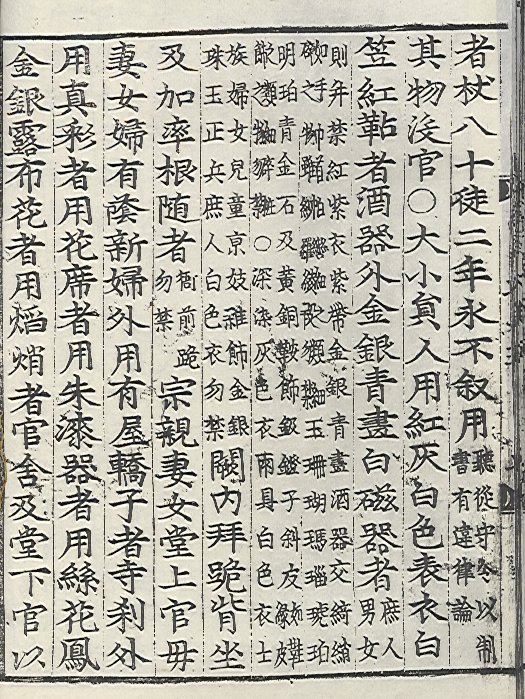 者杖八十徒二年永不叙用聽從守令以制
書有違律論
其物沒官○大小貟人用紅灰白色表衣白
笠紅䩞者酒器外金銀青畫白磁器者庶人
男女
則幷禁紅紫衣紫帶金銀青畫酒器交綺綃
玉珊瑚瑪瑙琥珀
明珀青金石及黃銅鞍飾鈒鐙子斜皮
○深染灰色衣雨具白色衣士
族婦女兒童京妓雜飾金銀
珠玉正兵庶人白色衣勿禁闕內拜跪背坐
及加率根随者衙前跪
勿禁宗親妻女堂上官毋
妻女婦有蔭新婦外用有屋轎子者寺刹外
用真彩者用花席者用朱漆器者用絲花鳳
金銀露布花者用熖焇者官舍及堂下官以